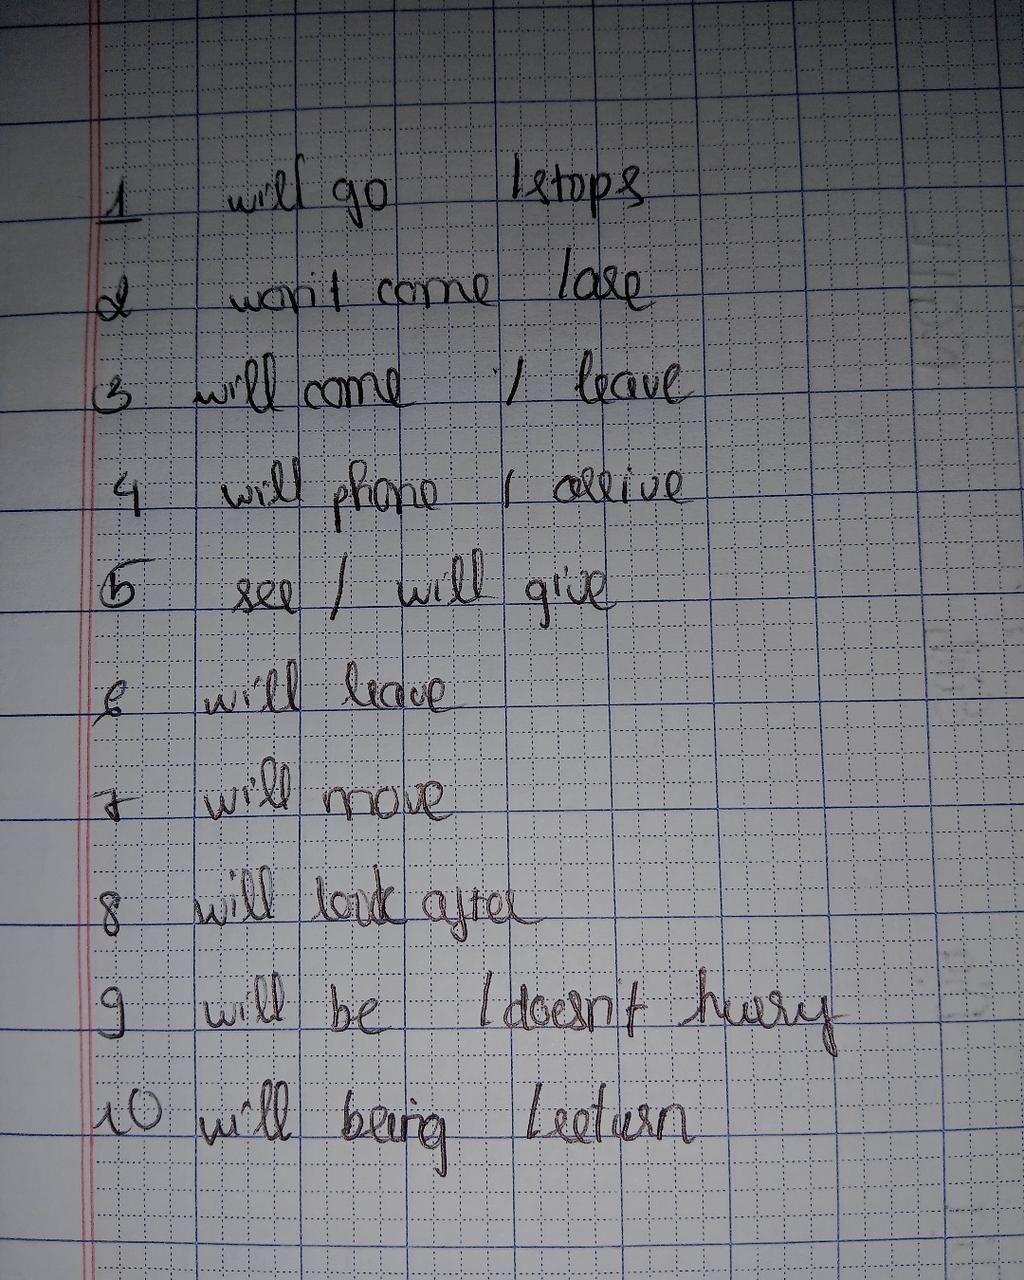 1 will go / stops
2 won't come / are
3 will come / leave
4 will phone / arrive
5 see / will give
6 will leave
7 will move
8 will look after
9 will be / doesn't hurry
10 will bring / return